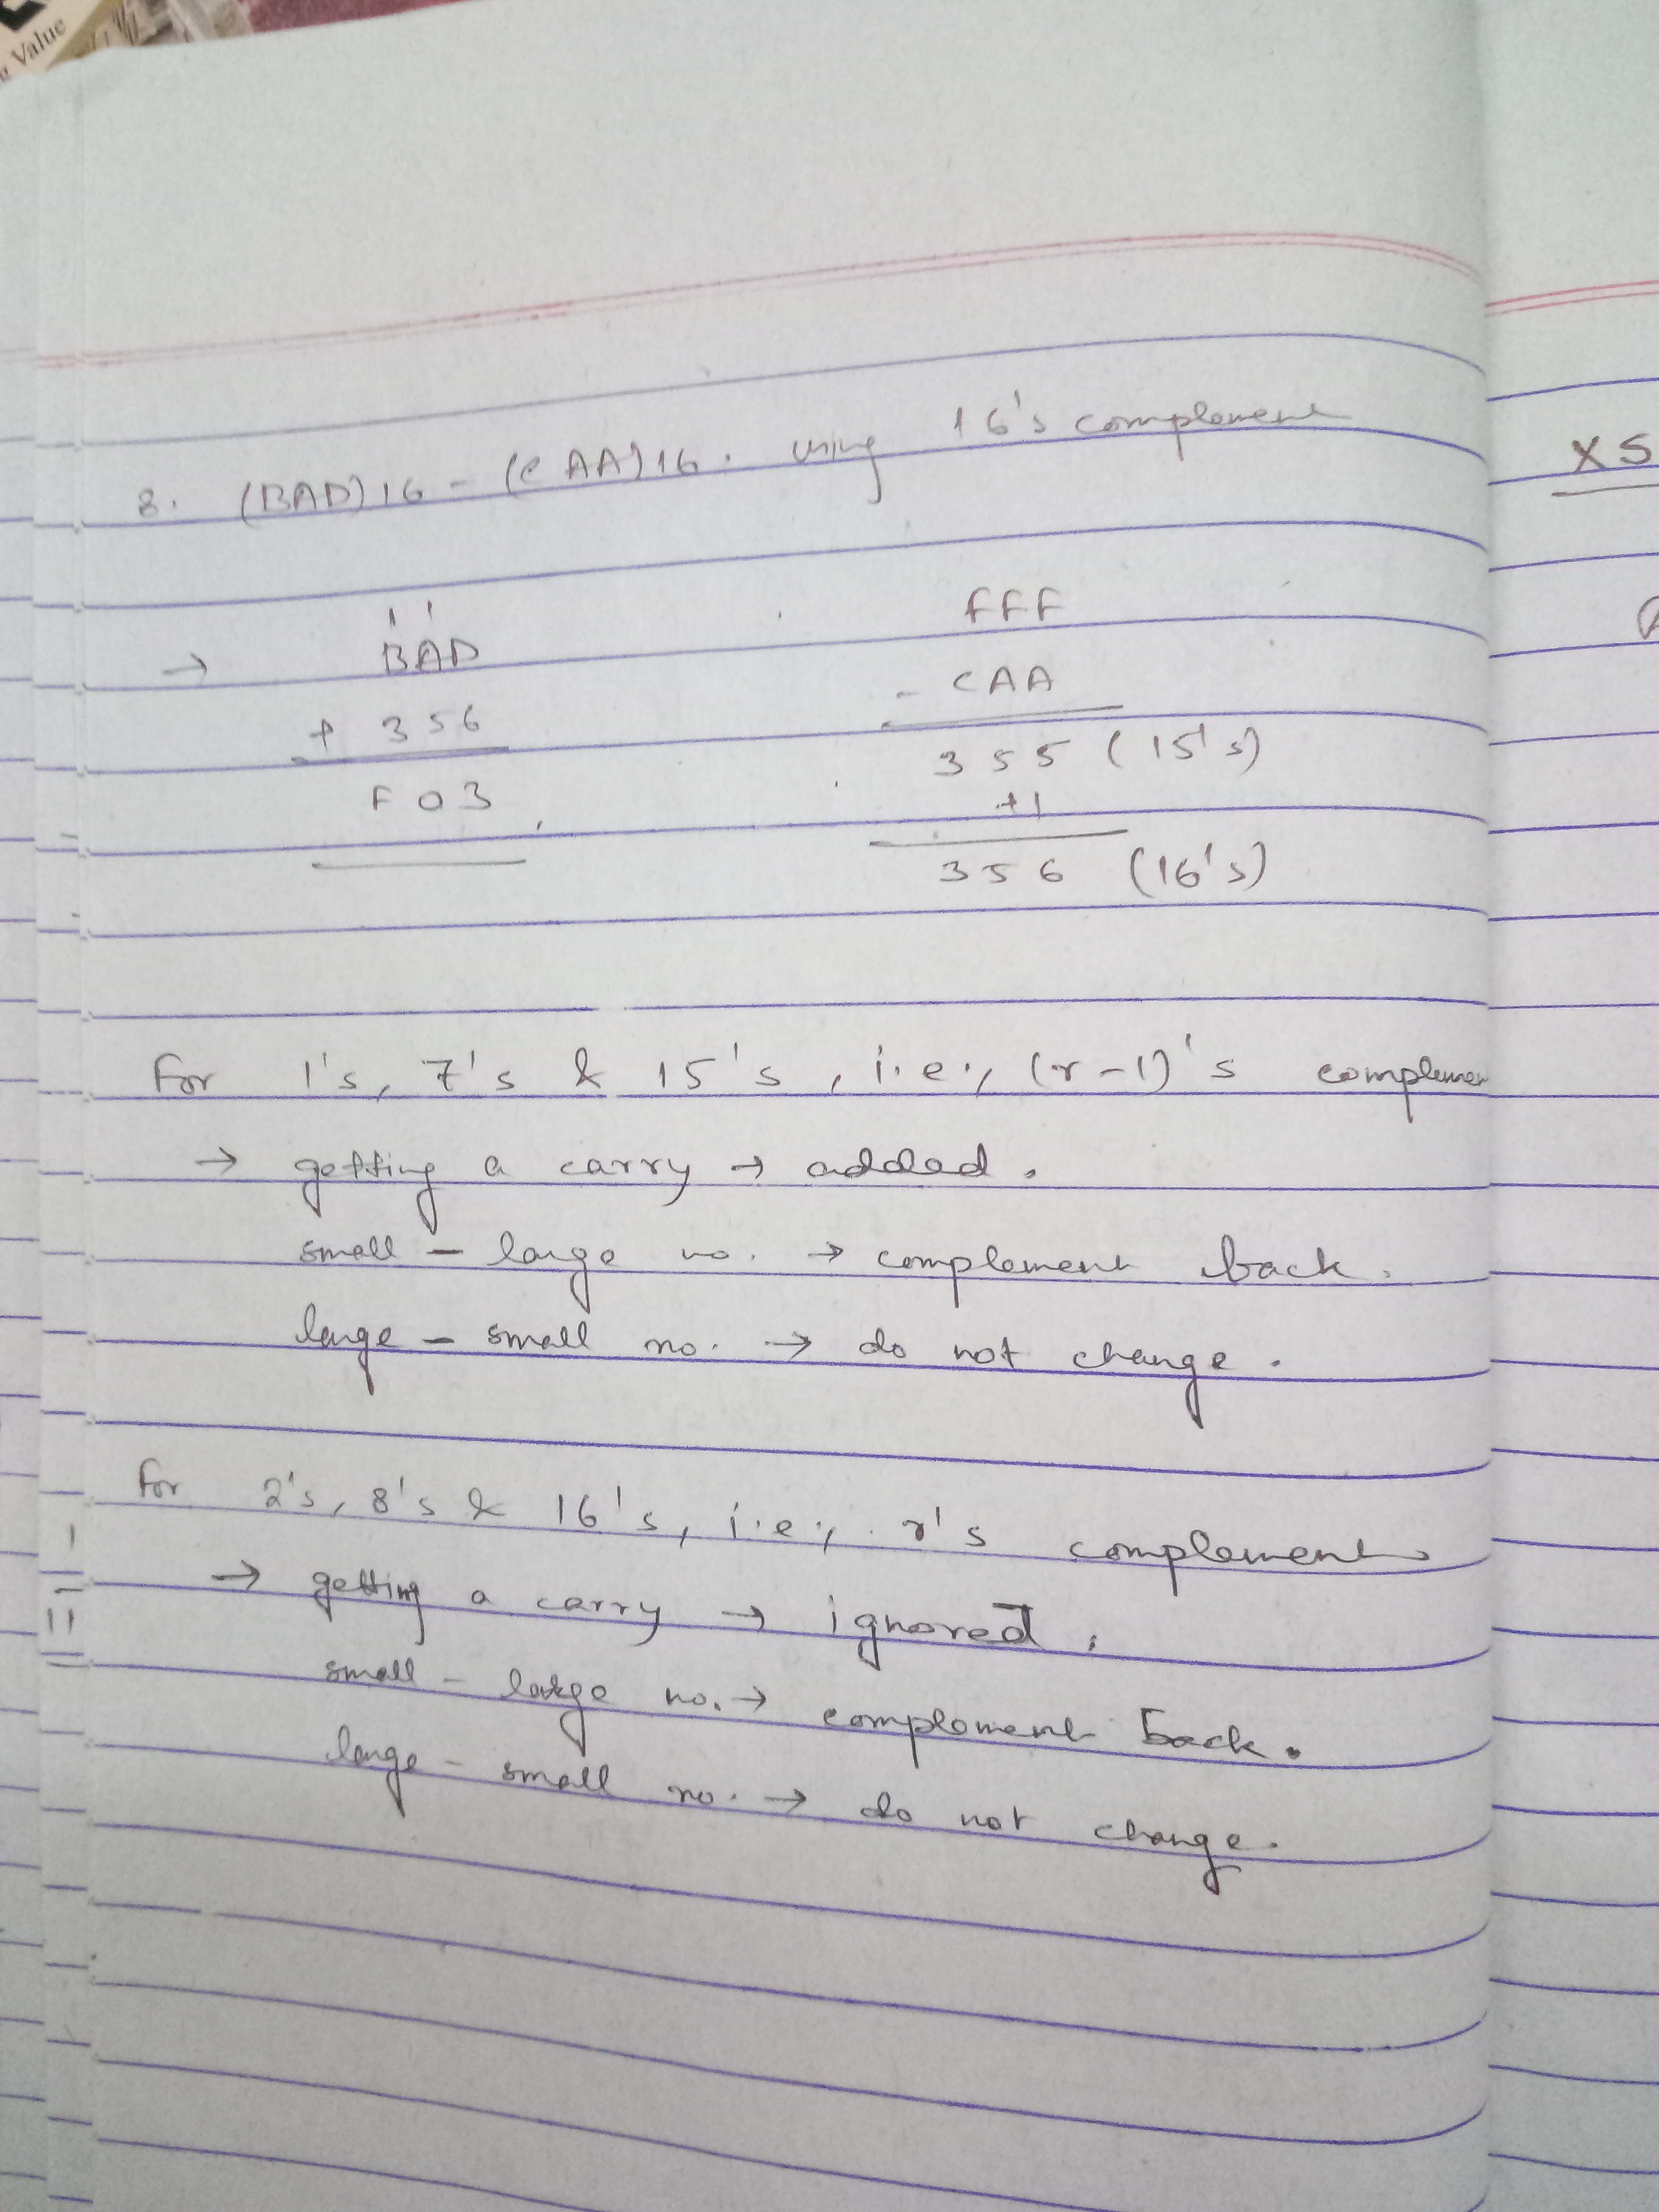 Value
8. (BAD)16 - (CAA)16. using 16's complement
XS
1 1
→ BAD
+ 356
F03
FFF
- CAA
355 (15's)
+1
356 (16's)
For 1's, 7's & 15's, i.e., (r-1)'s complemen
→ getting a carry → added.
small - large no. → complement back.
large - small no. → do not change.
For 2's, 8's & 16's, i.e., r's complement
→ getting a carry → ignored.
small - large no. → complement back.
large - small no. → do not change.